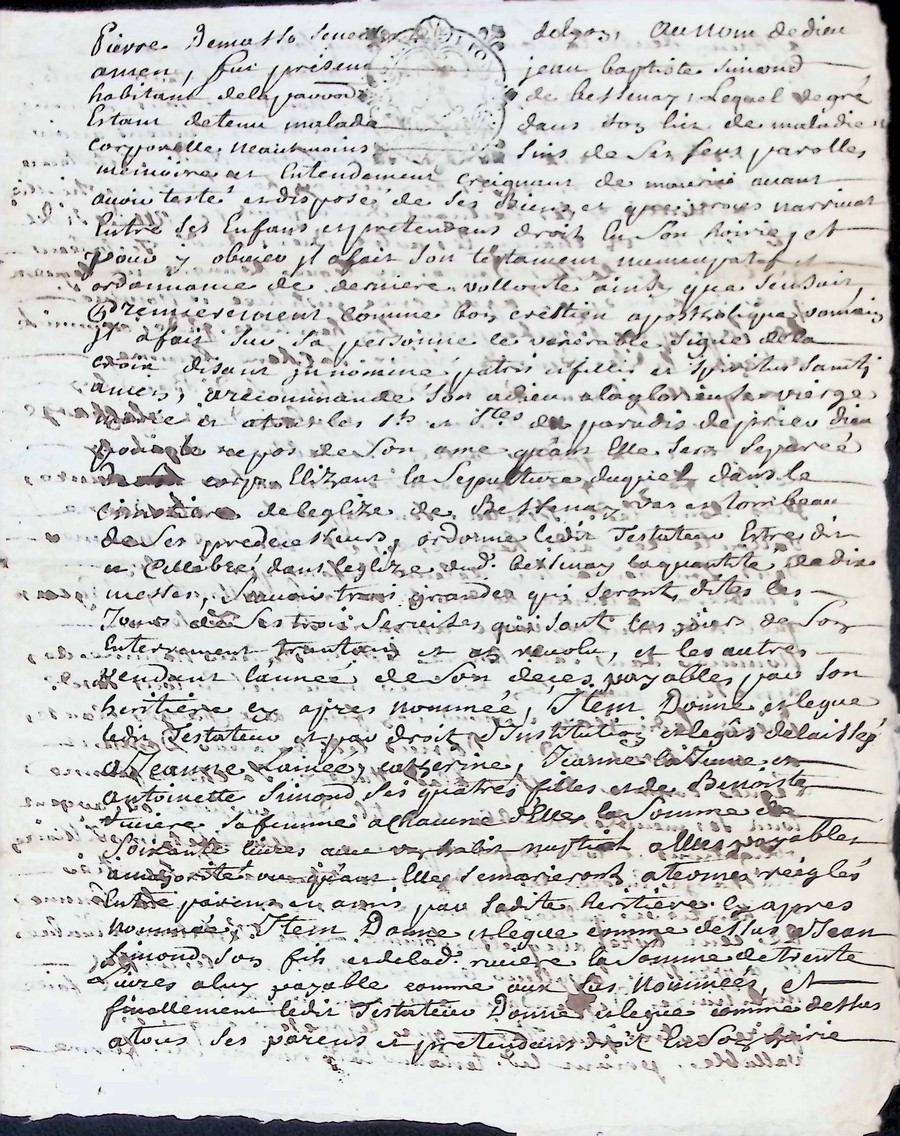 Pierre Demasso delgoz, Au nom de dieu
amen, fut présent jean baptiste simond
habitant dela parroi de bessenay, Lequel de gré
Estant detenu malade dans son lict de maladie
corporelle neautmoins sins de ses sens parolles
mémoire et Entendement creignant de mourir avant
avoir testé et disposé de ses biens et que proces narrivat
Entre ses Enfans et pretendans droit En son hoirie, et
pour y obvier jl a fait son testament nuncupatif et
ordonnance de derniere vollonté ainsy que sensuit,
Premierement comme bon crestien apostholique romain
jl a fait sur sa personne le venerable signe de la
croix disant jn nominé patris et fillii et spiritus sancti
amen, a recommandé son ame a dieu a la glorieuse vierge
marie et a tous les sts et stes du paradis de prier dieu
pour le repos de son ame quant Elle sera separeé
de son corps Elizant la sepulture duquel dans le
cimetiere de leglize de Bessenay vas et tombeau
de ses predecesseurs, ordonne ledit Testateur Estre dit
et Cellebré dans leglize dud. bessenay la quantité de dix
messes, Scavoir trois grandes qui seront dites les
Jours de ses trois Services qui sont les jours de son
Enterrement trantain et an revolu, et les autres
pendant lanneé de son deces, payables par son
heritiere cy apres nommeé, Jtem Donne et legue
ledit Testateur et par droit d'Institution et legat delaissé
a Jeanne Lainée, catherine, Jeanne la Jeune et
antoinette Simond ses quatres filles et de Benoiste
riviere sa femme a chacune d'Elles la Somme de
soixante livres avec un habit nuptial a Elles payables
a majorité ou quant Elle se marieront a termes réiglés
Entre parens et amis par ladite heritiere cy apres
nommeé, Jtem Donne et legue comme dessus a Jean
Simond son fils et de lad. riviere la Somme de trente
Livres a luy payable comme aux sus nommées, et
finallement ledit Testateur Donne et legue comme dessus
a tous ses parens et pretendans droit En son hoirie